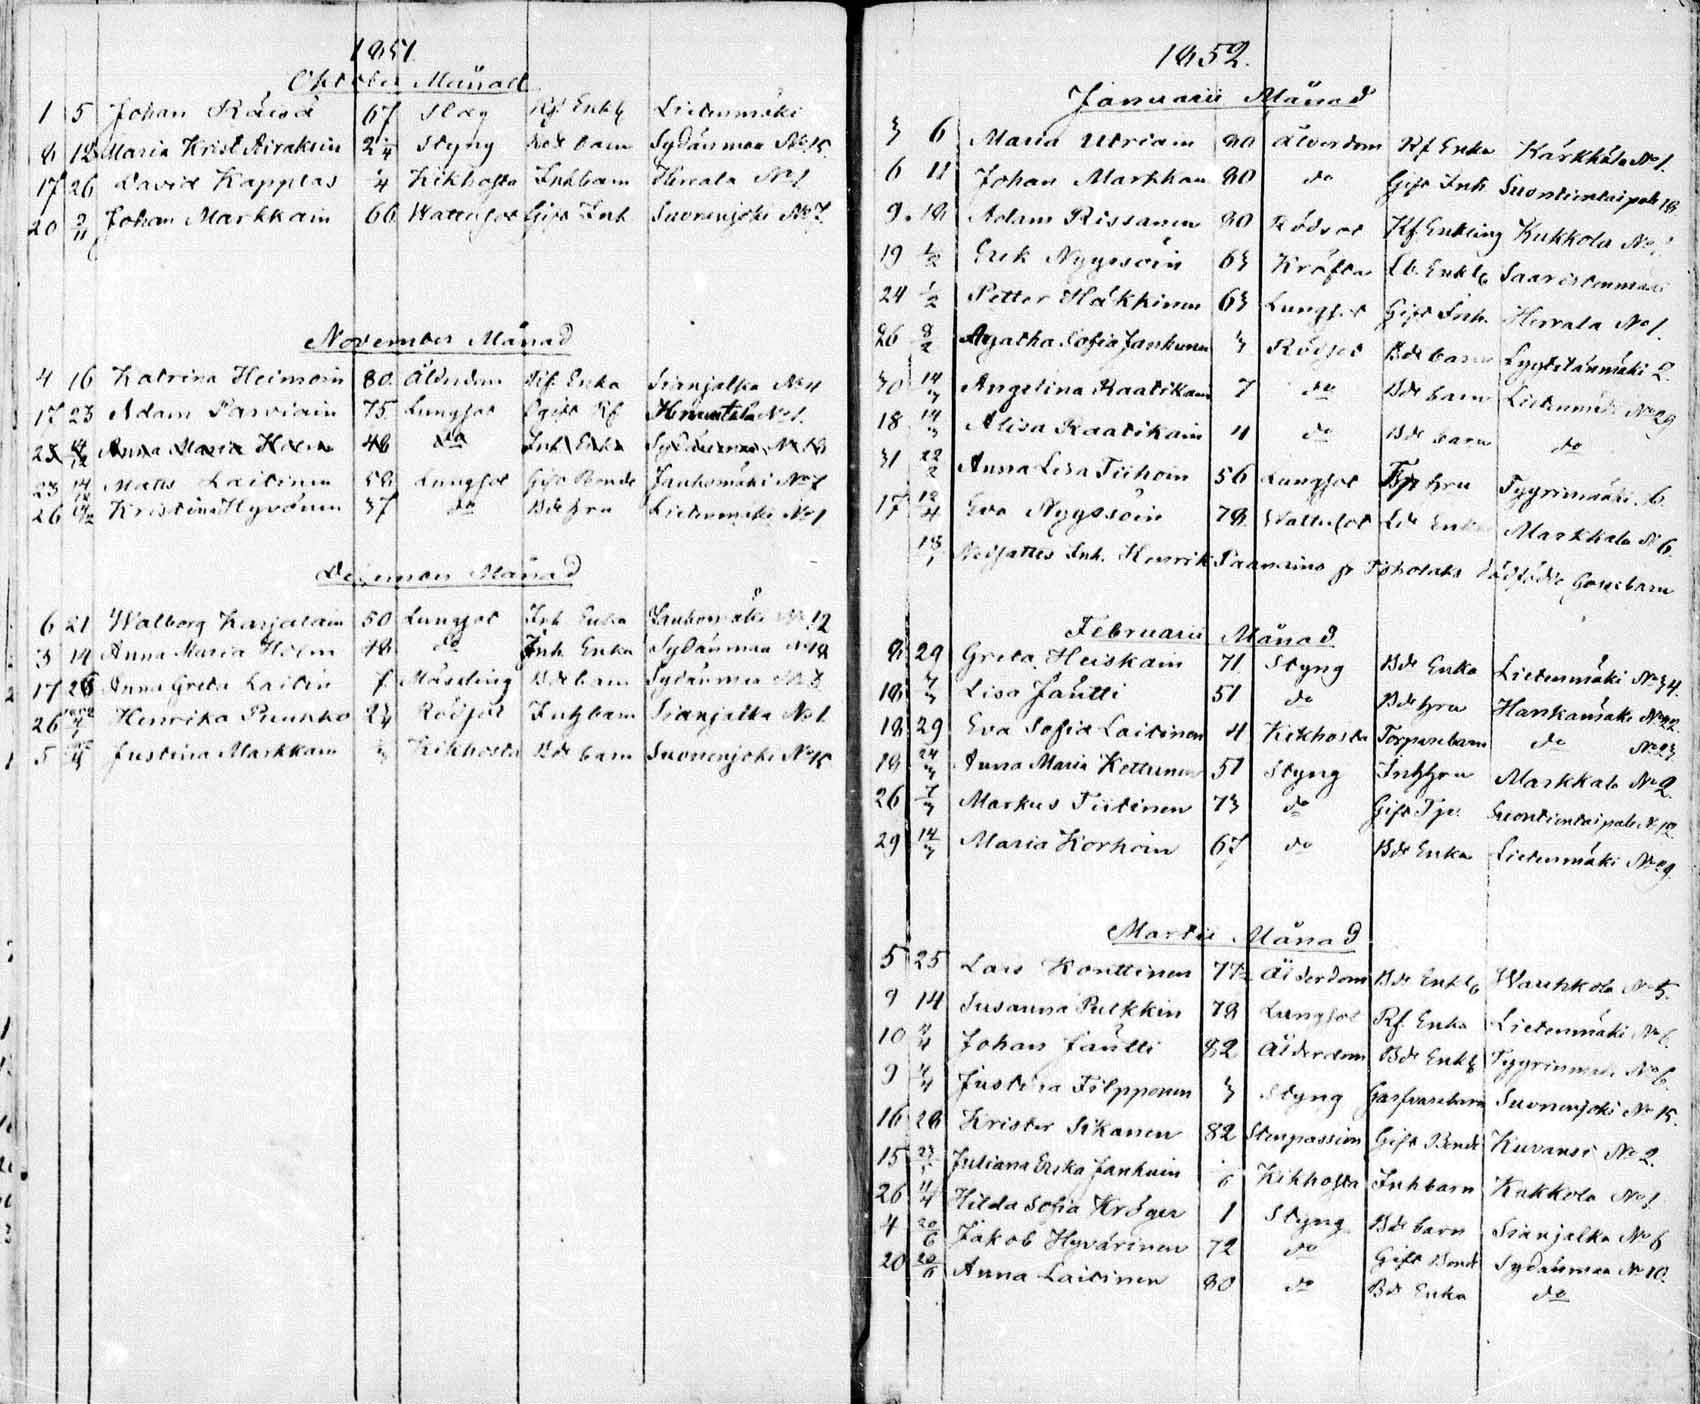 1851.
Oktober Månad
1 5 Johan Räisä 67 Slag Rf. Enkl. Lietenmäki
8 12 Maria Krist. Airaksin 2 1/4 Styng barn Sydänmaa No 15.
17 26 David Kapplas 1/4 Kikhosta Inh barn Herrala No 1
20 2/11 Johan Markkain 66 Wattusot Gift Inh. Suonenjoki No 7.
November Månad
4 16 Katrina Heimoin 80. Ålderdom Rf. Enka Sianjalka No 4
17 23 Adam Parviain 75 Lungsot Ogift Rf No 1.
23 4/12 Anna Maria Holm 48 do Inh. Enka Sydänmaa No 18
23 14/12 Matts Laitinen 58 Lungsot Gift Bonde Jauhomäki No 7
26 Kristina Hyvönen 37 do Bde hru Lietenmäki No 1
December Månad
6 21 Walborg Karjalain 50 Lungsot Inh Enka Jauhomäki No 12
3 14 Anna Maria Holm 48 do Inh. Enka Sydänmaa No 18
17 26 Anna Greta Laitin 7 Mässling Bde barn Sydänmaa No 8
26 Henrika Puukko 2 1/4 Rödsot Inh barn Sianjalka No 1.
5 Justina Markkain Kikhosta Bde barn Suonenjoki No 15
1852.
Januarii Månad
3 6 Maria Utriain 80 Ålderdom Rf. Enka Kärkkäla No 1.
6 11 Johan Markkan 80 do Gift Inh Suontientaipale 18
9 18 Adam Rissanen 80 Rödsot Rf. Enkling Kukkola No 1
19 1/2 Erik Nyyssöin 63 Kräfta Enkl. Saaristenmäki
24 1/2 Petter Häkkinen 63 Lungsot Gift Inh. Herrala No 1.
26 8/2 Agatha Sofia Janhunen 3 Rödsot Bde barn Lyytilänmäki 2.
30 14/3 Angelina Raatikain 7 do Bde barn Lietenmäki No 29
18 14/3 Alisa Raatikain 4 do Bde barn do
31 22/2 Anna Lisa Tiihoin 56 Lungsot Tp hru Tyyrinmäki 6.
17 12/4 Eva Nyyssöin 78 Wattusot Enka Markkala No 6.
18/1 Inh. Henrik Paananins fr Toholaks Dödfödde Gossebarn
Februarii Månad
8 29 Greta Heiskain 71 Styng Bde Enka Lietenmäki No 34.
18 7/3 Lisa Jäntti 51 do Bde hru Harkamäki No 22
18 29 Eva Sofia Laitinen 4 Kikhosta Torparebarn do No 23
18 24/3 Anna Maria Kettunen 51 Styng Inh hru Markkala No 2
26 7/3 Markus Tiitinen 73 do Gift Tpe. Suontientaipale No 12.
29 14/3 Maria Korhoin 67 do Bde Enka Lietenmäki No 29.
Martii Månad
5 25 Lars Konttinen 77 1/2 Ålderdom Bde Enkl. Wauhkola No 5.
9 14 Susanna Pulkkin 78 Lungsot Rf. Enka Lietenmäki No 6.
10 4/4 Johan Jäntti 82 Ålderdom Bde Enkl. Tyyrinmäki No 6.
9 4/4 Justina Filpponen 3 Styng Suonenjoki No 15.
16 28 Krister Sikanen 82 Stenpassion Gift Bonde Kuvansi No 2.
15 Juliana Erika Janhuin Kikhosta Inh barn Kukkola No 1
26 11/4 Hilda Sofia Kröger 1 Styng Bde barn Sianjalka No 6
4 20/6 Jakob Hyvärinen 72 do Gift Bonde Sydänmaa No 10.
20 20/6 Anna Laitinen 80 do Bde Enka do